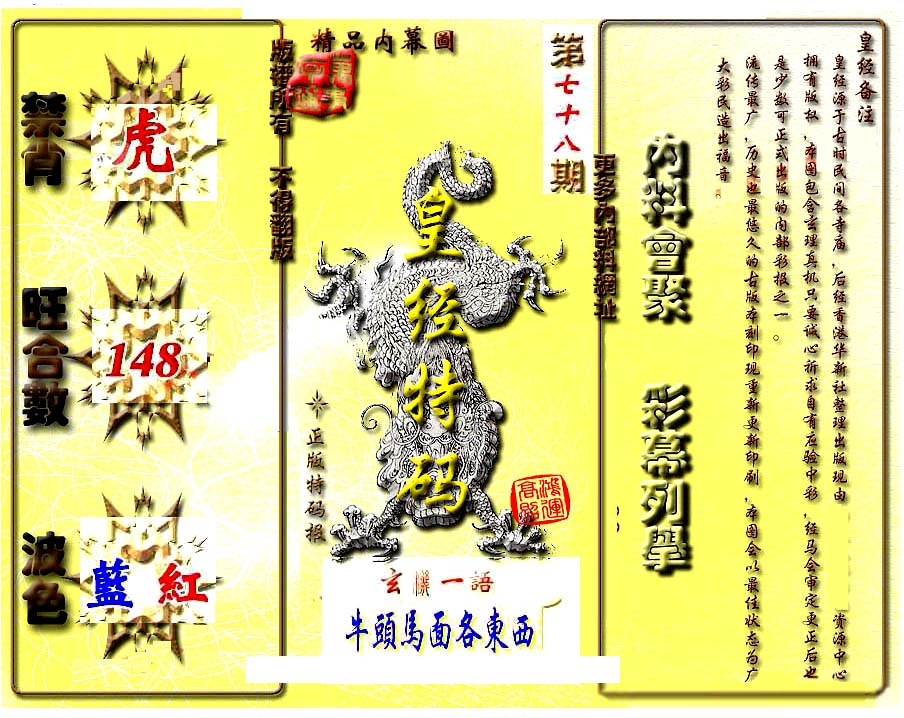 精品内幕圖
第七十八期
版權所有 不得翻版
更多內部料網址
禁肖
虎
旺合數
148
波色
藍 紅
皇经特码
正版特码报
鴻運高照
玄機一語
牛頭馬面各東西
內料會聚
彩幕列舉
皇经备注
皇经源于古时民间各寺庙，后经香港华新社整理出版现由 资源中心
拥有版权，本图包含玄理真机只要诚心祈求自有应验中彩，经马会审定更正后也
是少数可正式出版的内部彩报之一。
流传最广，历史也最悠久的古版本刻印现重新更新印刷，本图会以最佳状态为广
大彩民造出福音